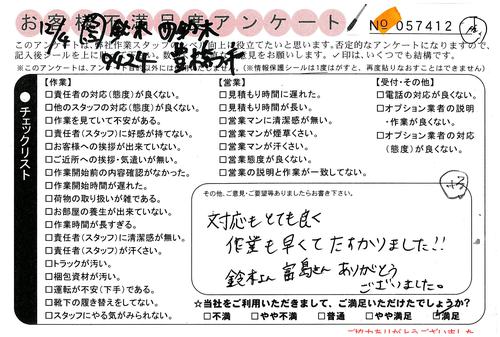 お客様不満足度アンケート
No 057412
このアンケートは、弊社作業スタッフのレベル向上に役立てたいと思います。否定的なアンケートになりますので、
※このアンケートは、
(※情報保護シールは1度はがすと、再度貼りなおすことはできません)
チェックリスト
【作業】
□責任者の対応(態度)が良くない。
□他のスタッフの対応(態度)が良くない。
□作業を見ていて不安がある。
□責任者(スタッフ)に好感が持てない。
□お客様への挨拶が出来ていない。
□ご近所への挨拶・気遣いが無い。
□作業開始前の内容確認がなかった。
□作業開始時間が遅れた。
□荷物の取り扱いが雑である。
□お部屋の養生が出来ていない。
□作業時間が長すぎる。
□責任者(スタッフ)に清潔感が無い。
□責任者(スタッフ)が汗くさい。
□トラックが汚い。
□梱包資材が汚い。
□運転が不安(下手)である。
□靴下の履き替えをしてない。
□スタッフにやる気がみられない。
【営業】
□見積もり時間に遅れた。
□見積もり時間が長い。
□営業マンに清潔感が無い。
□営業マンが煙草くさい。
□営業マンが汗くさい。
□営業態度が良くない。
□営業の説明と作業が一致してない。
【受付・その他】
□電話の対応が良くない。
□オプション業者の説明
・作業が良くない。
□オプション業者の対応
(態度)が良くない。
その他、ご意見・ご要望等ありましたらお書き下さい。
対応もとても良く
作業も早くてたすかりました!!
鈴木さん 富島さん ありがとう
ございました。
☆当社をご利用いただきまして、ご満足いただけたでしょうか?
□不満 □やや不満 □普通 □やや満足 □満足
ご協力ありがとうございました